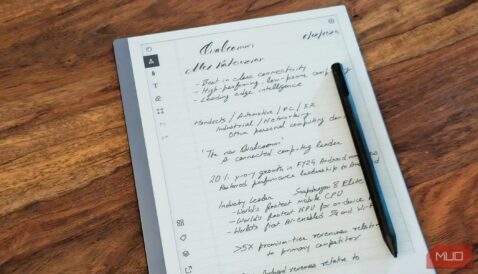 Qualcomm
- Best in class connectivity
- High-performing, low-power
- Leading edge intelligence
Handsets / Automotive / PC / XR
Industrial / Networking
Other personal computing
'The new Qualcomm'
A connected computing leader
20% y-o-y growth in FY24 Android
performance leadership to Android
Industry Leader Snapdragon 8 Elite
- World's fastest mobile CPU
- World's fastest NPU for on-device
- World's first AI-enabled 5G and Wi-Fi
>5X premium-tier revenues relative
to primary competitor
revenues relative to
MUO